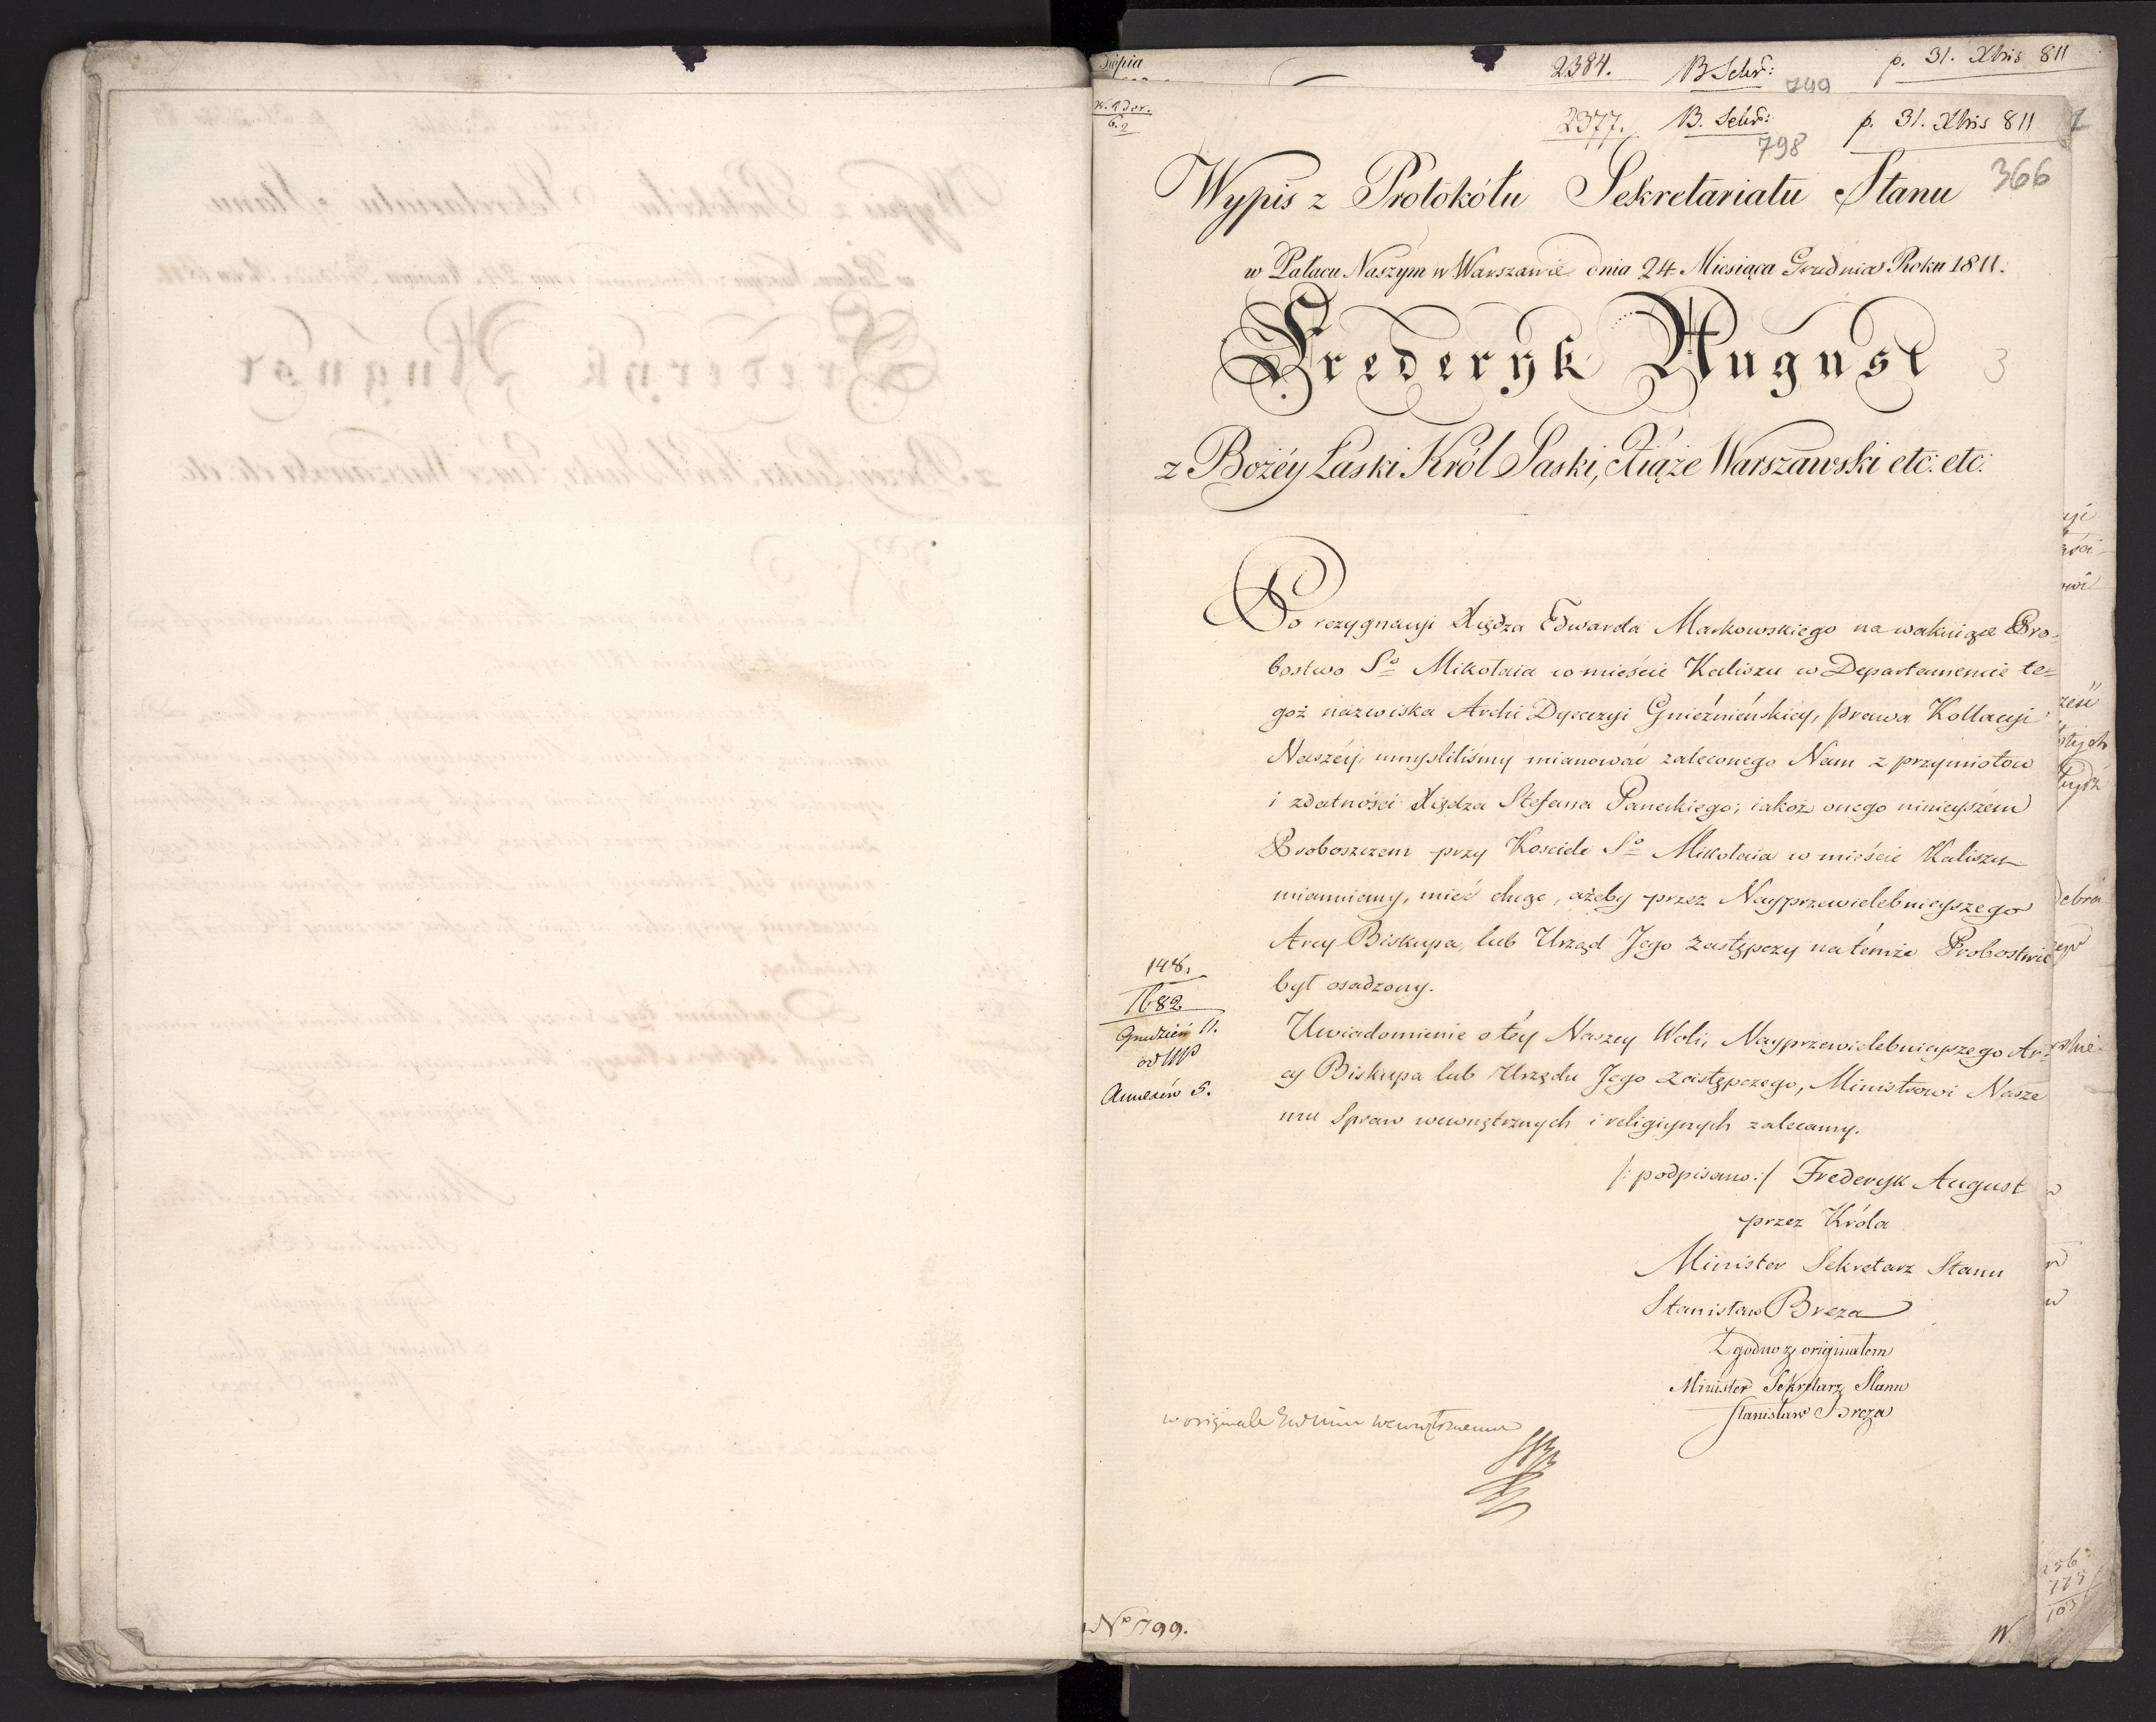 Kopia
2384. B Schr: p. 31. Xbris 811
799
2377. B. Schr: p. 31. Xbris 811
798
366
Wypis z Protokółu Sekretariatu Stanu
w Pałacu Naszym w Warszawie dnia 24 Miesiąca Grudnia Roku 1811.
Frederyk August
3
z Bożéy Łaski Król Saski, Xiąże Warszawski etc: etc:
Po rezygnacyi Xiędza Edwarda Markowskiego na wakuiące Pro-
bostwo So Mikołaia w mieście Kaliszu w Departamencie te=
goż nazwiska Archi Dyecezyi Gnieźnieńskiey, prawa Kollacyi
Naszéy, umyśliliśmy mianować zaleconego Nam z przymiotów
i zdatności Xiędza Stefana Paneckiego; iakoż onego ninieyszém
Proboszczem przy Kosciele So Mikołaia w mieście Kaliszu
mianuiemy, mieć chcąc, ażeby przez Nayprzewielebnieyszego
Arcy Biskupa, lub Urząd Jego zastępczy na témże Probostwie
był osadzony.
148.
1682
Grudzień 11.
Annexów 5.
Uwiadomienie o téy Naszey Woli, Nayprzewielebnieyszego Ar=
cy Biskupa lub Urzędu Jego zastępczego, Ministrowi Nasze
mu Spraw wewnętrznych i religiynych zalecamy.
/: podpisano :/ Frederyk August
przez Króla
Minister Sekretarz Stanu
Stanisław Breza
Zgodno z originałem
Minister Sekretarz Stanu
Stanisław Breza
w originale wewnętrznemu
No 799.